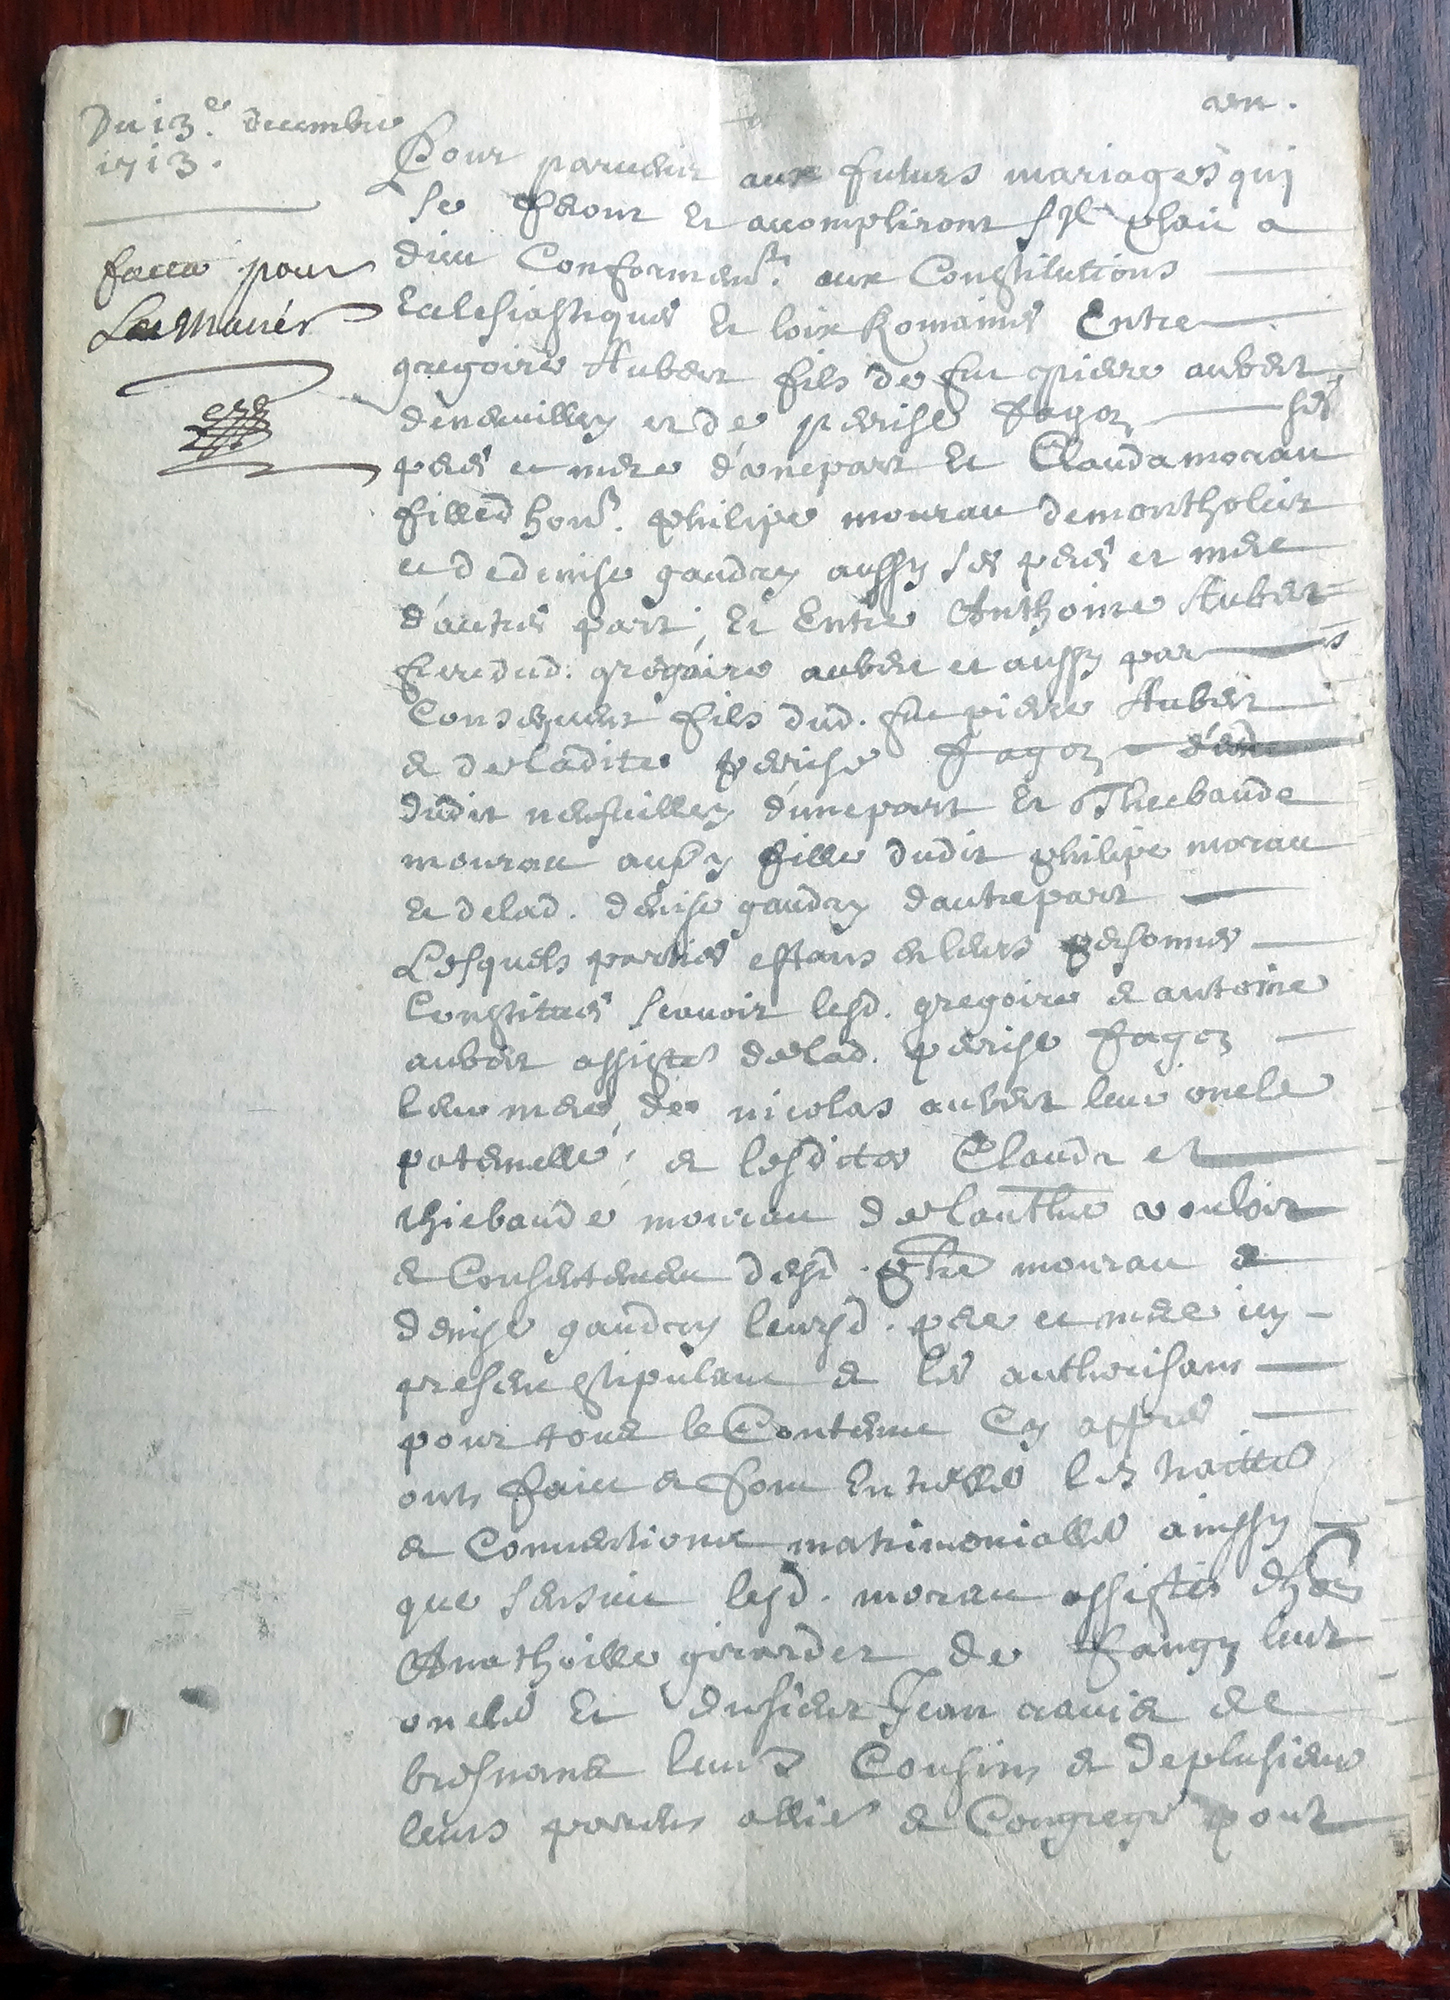 Du 13.e decembre
1713.
facta pour
Pour parvenir aux futurs mariages qui
se feront et acompliront s'jl plait a
dieu Conformemt. aux Constitutions
Eclesiastiques et loix Romaines Entre
gregoire Aubert fils de feu pierre aubert
et de perise fagoz ses
peres et mere d'une part et Clauda morau
fille d'honn. philipe mourau de montholier
et de denise gaudry aussy ses peres et mere
d'autres part, et Entre Anthoine Aubert
frere dud. gregoire aubert et aussy par
Consequent fils dud. feu pierre Aubert
et de ladite perise fagoz
dudit d'une part et Thiebaude
mourau aussy fille dudit philipe morau
et de lad. denise gaudry d'autre part
Lesquels parties estans en leurs personnes
Constitues scavoir lesd. gregoire et antoine
aubert assistes de lad. perise fagoz
leur mere, de nicolas aubert leur oncle
paternelle, et lesdites Clauda et
thiebaude mourau de l'authte vouloir
et Consentemen desd. mourau et
denise gaudry leursd. pere et mere icy
presen stipulant et les authorisant
pour tout le Contenu Cy appres
ont faict et font Entr'elles les traitté
et Conventions matrimonialles ainssy
que s'ensuit lesd. morau assistes
Anathoille girardet de fangy leur
oncle et du sieur Jean de
leurs Cousins et de plusieur
leurs parents allies et Congregé pour